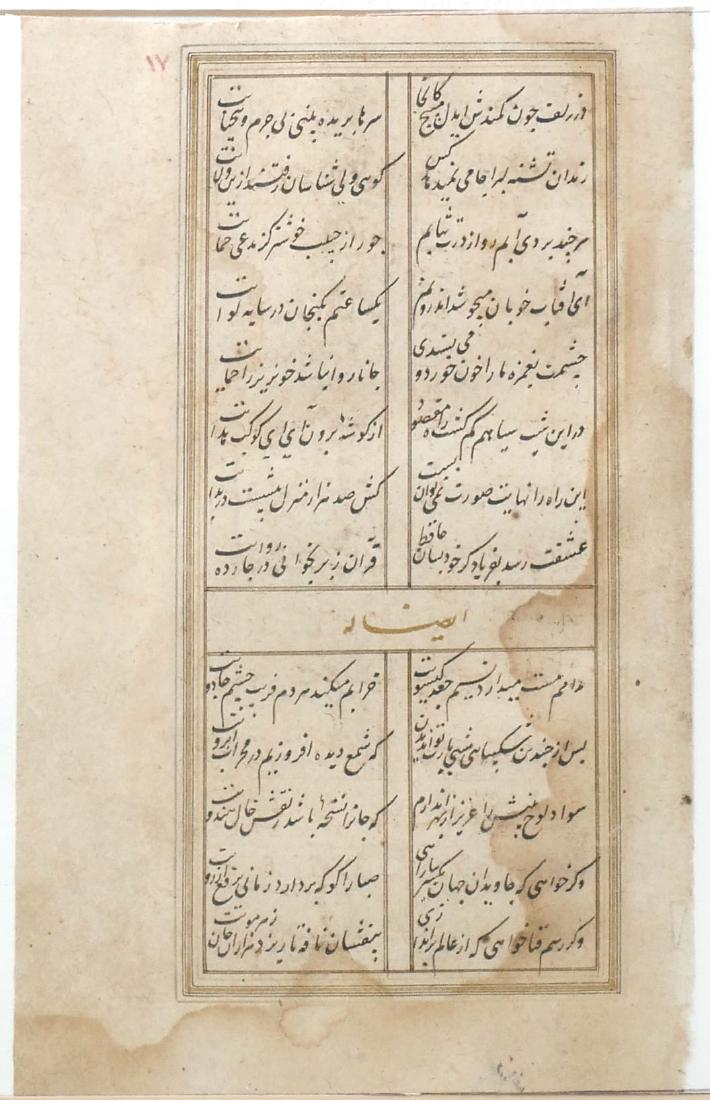 ١٧
در زلف چون کمندش ایدل مپیچ کانجا سرها بریده بینی بی جرم و بیجنایت
رندان تشنه لبرا جامی نمیدهد کس گوئی ولی شناسان رفتند ازین ولایت
هر چند بردی آبم رو از درت نتابم جور از حبیب خوشتر کز مدعی حمایت
ای آفتاب خوبان میجوشد اندرونم یکساعتم بگنجان در سایه
چشمت بغمزه ما را خون خورد و می پسندی جانا روا نباشد خونریز را حمایت
در این شب سیاهم گم گشت راه مقصود از گوشه برون آی ای کوکب هدایت
این راه را نهایت صورت نمی توان بست کش صد هزار منزل بیشست در بدایت
عشقت رسد بفریاد گر خود بسان حافظ قرآن زبر بخوانی در چارده روایت
ایضا له
مدامم مست میدارد نسیم جعد گیسویت خرابم میکند هر دم فریب چشم جادویت
پس از چندین شکیبایی شبی یارب توان دیدن که شمع دیده افروزیم در محراب ابرویت
سواد لوح بینش را عزیز از بهر آن دارم که جانرا نسخه باشد ز نقش خال هندویت
وگر خواهی که جاویدان جهان یکسر بیارائی صبا را گو که بردارد زمانی برقع از رویت
وگر رسم فنا خواهی که از عالم براندازی بیفشان نافه تا ریزد هزاران جان ز هر مویت